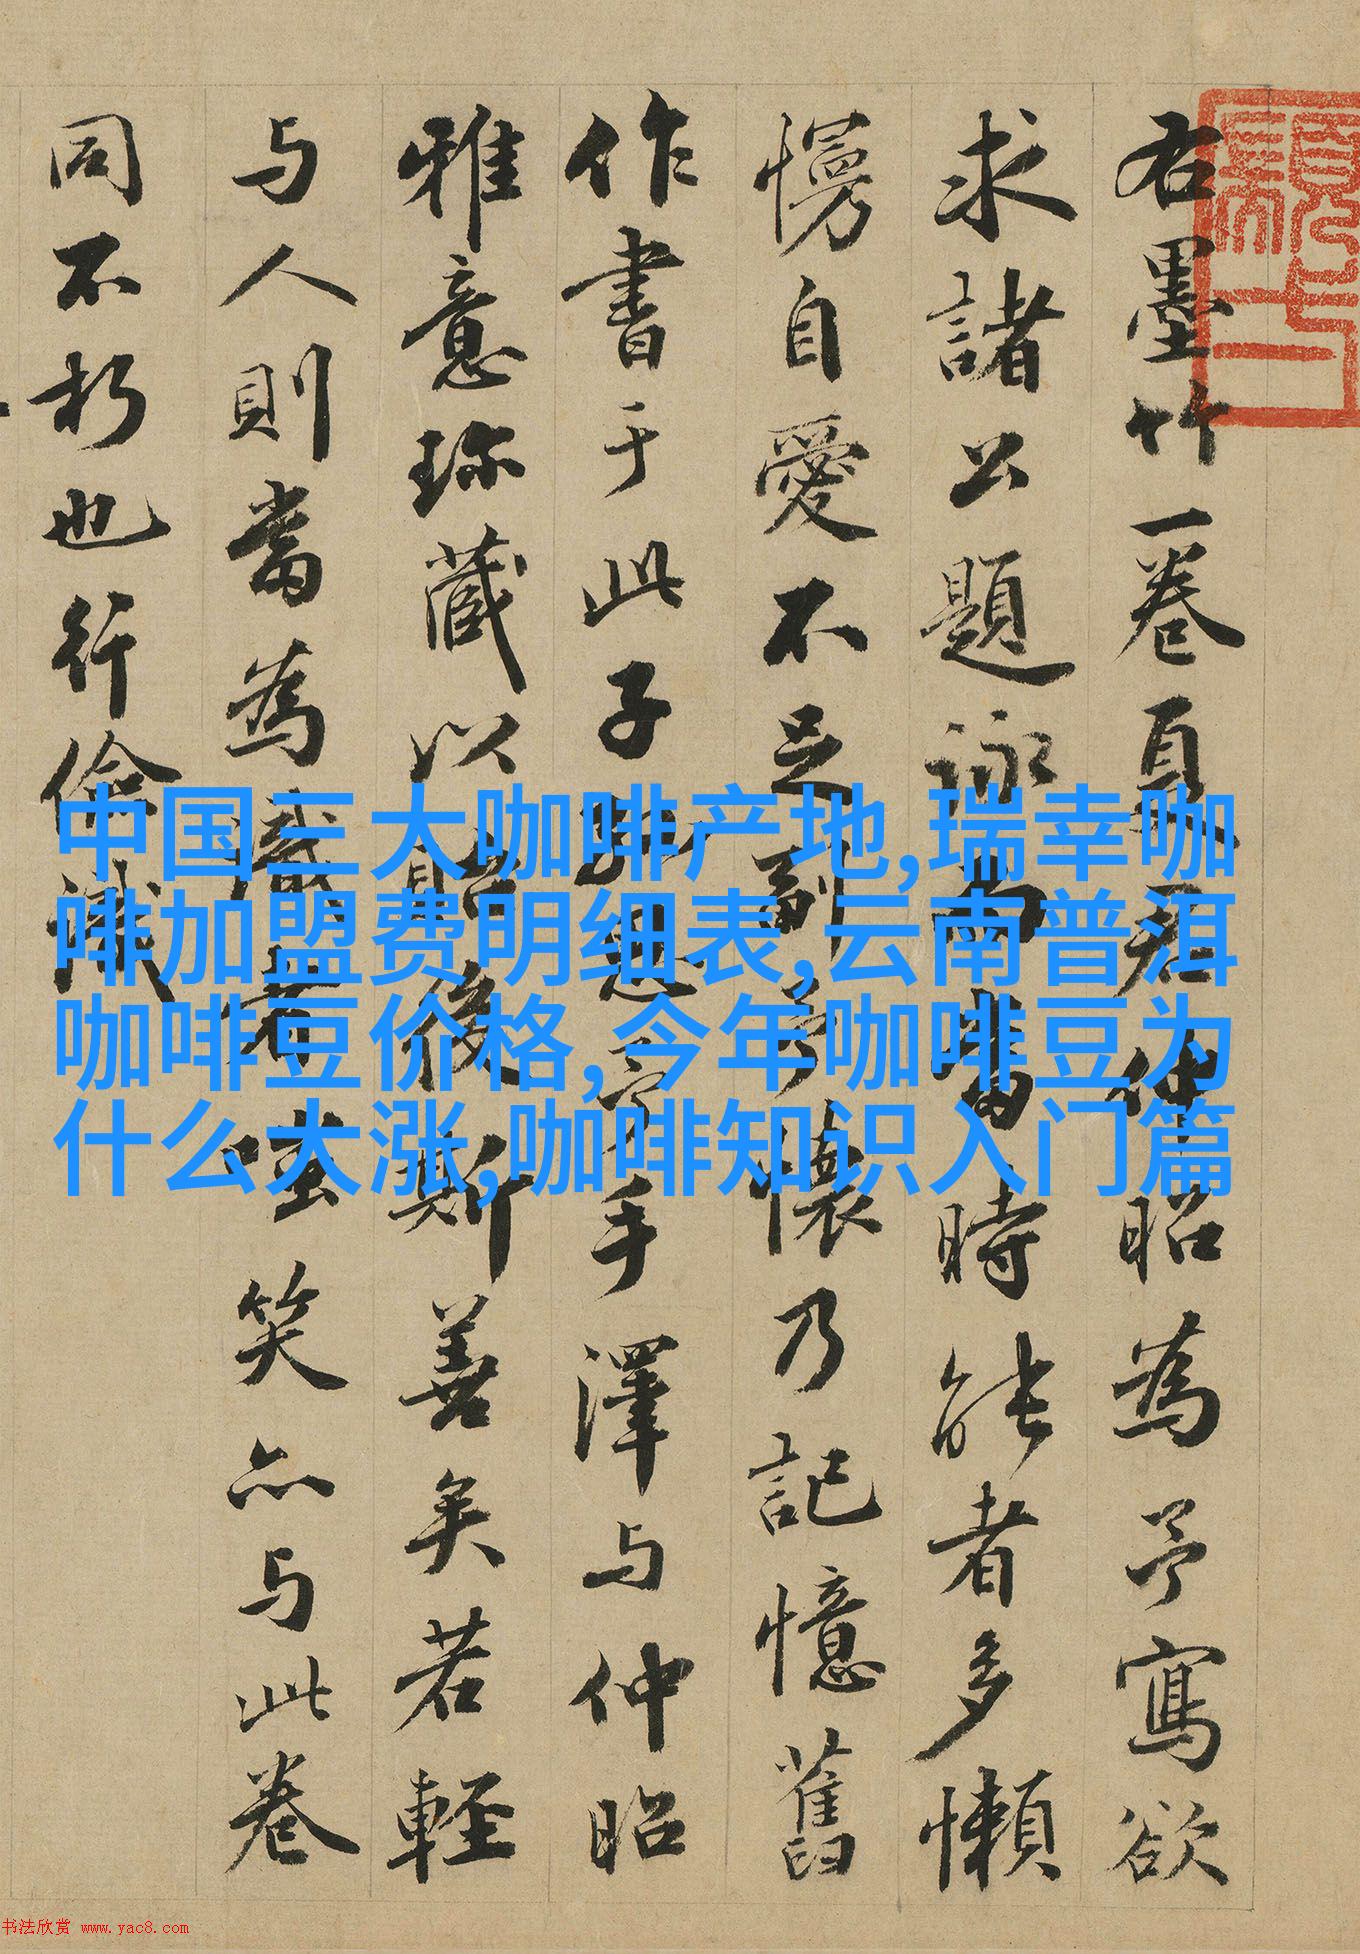 右墨竹一卷夏君仲昭為予寫欲
求諸公題詠而當時能者多懶
慢自愛不足副予懷乃記憶舊
作書于此子孫思予手澤与仲昭
雅意珍藏以貽後斯善矣若輕
与人則當為識者嗤笑亦与此卷
同不朽也行儉識
中国三大咖啡产地,瑞幸咖
啡加盟费明细表,云南普洱
咖啡豆价格,今年咖啡豆为
什么大涨,咖啡知识入门篇
书法欣赏 www.yac8.com